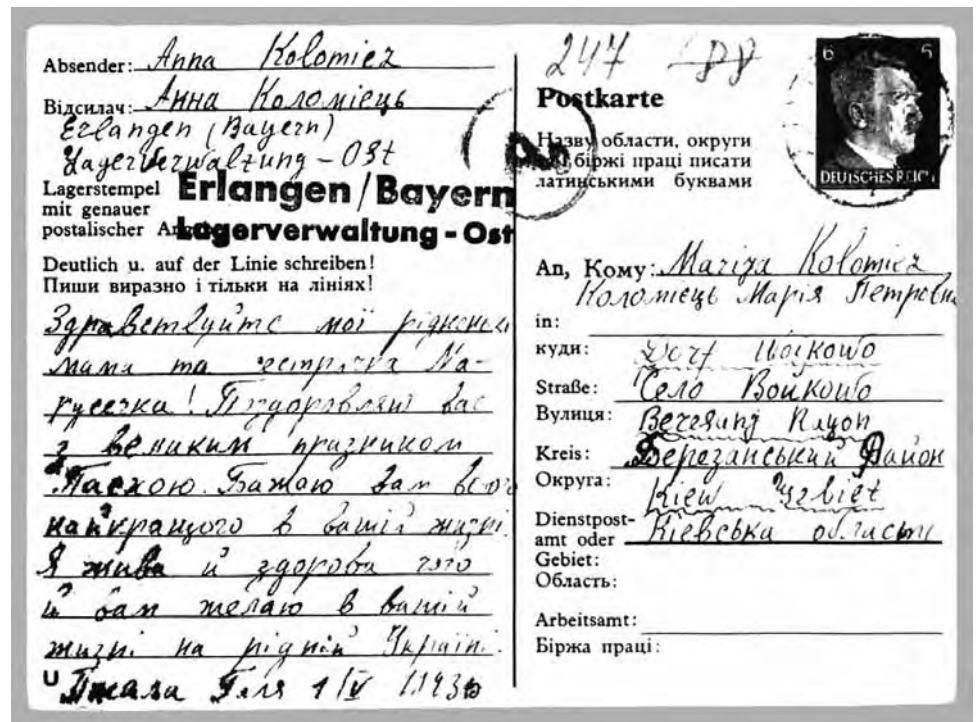 Absender: Anna Kolomiez
Відсилач: Анна Коломієць
Erlangen (Bayern)
Lagerverwaltung - Ost
Lagerstempel
mit genauer
postalischer
Erlangen/Bayern
Lagerverwaltung - Ost
Deutlich u. auf der Linie schreiben!
Пиши виразно і тільки на лініях!
Здравствуйте мої рідненькі
мама та сестричка Ма-
русечка! Поздоровляю вас
з великим празником
Паскою. Бажаю вам всего
найкращого в вашій жизні.
Я жива й здорова чого
й вам желаю в вашій
жизні на рідній Україні.
U Писала Галя 1/IV 1943
247
Postkarte
6 6
DEUTSCHES REICH
Назву області, округи
біржі праці писати
латинськими буквами
An, Кому: Mariza Kolomiez
Коломієць Марія Петровна
in:
куди: Dorf Woikowo
Straße: Село Войково
Вулиця: Beresanj Rayon
Kreis: Березанський Район
Округа: Kiew Gebiet
Dienstpost-
amt oder Кіевська области
Gebiet:
Область:
Arbeitsamt:
Біржа праці: